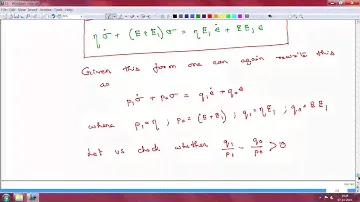 η σ̇ + (E+E₁) σ = η E₁ ε̇ + E E₁ ε
Given this form one can again rewrite this
as
p₁ σ̇ + p₀ σ = q₁ ε̇ + q₀ ε
where p₁ = η ; p₀ = (E+E₁) ; q₁ = η E₁ ; q₀ = E E₁
Let us check whether q₁/p₁ - q₀/p₀ > 0